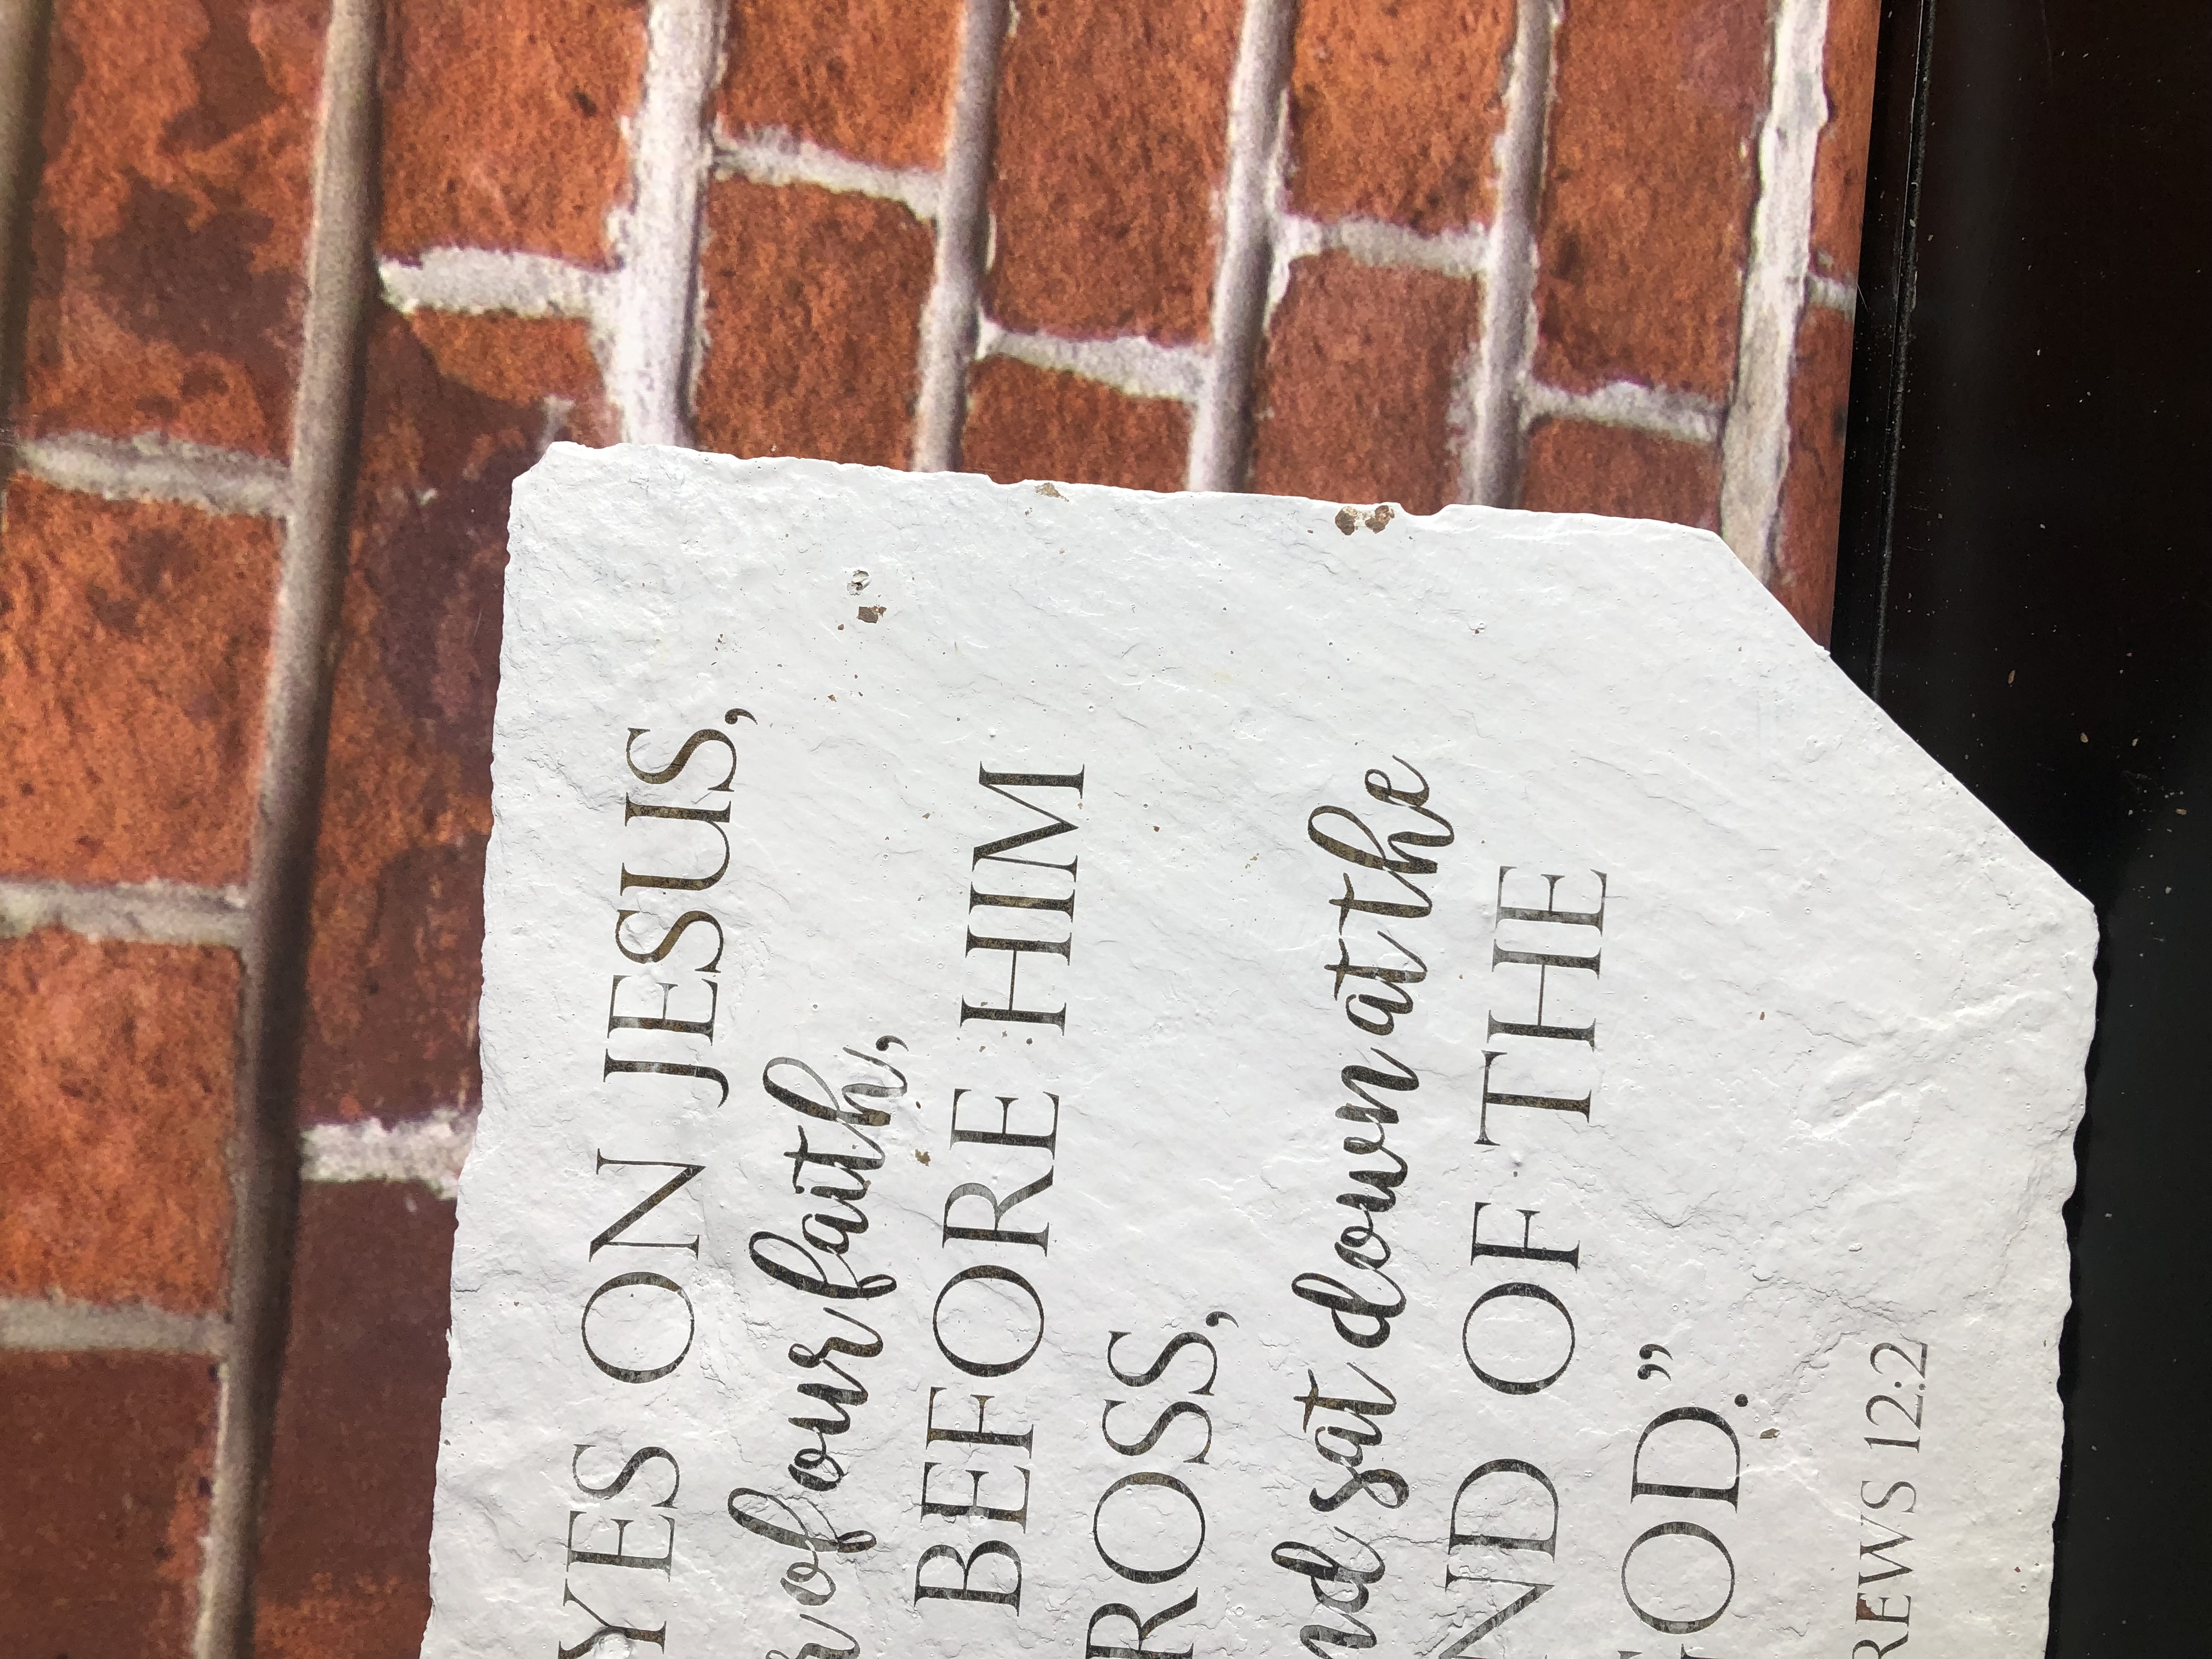 YES ON JESUS,
r of our faith,
BEFORE HIM
ROSS,
nd sat down at the
ND OF THE
OD.”
REWS 12:2